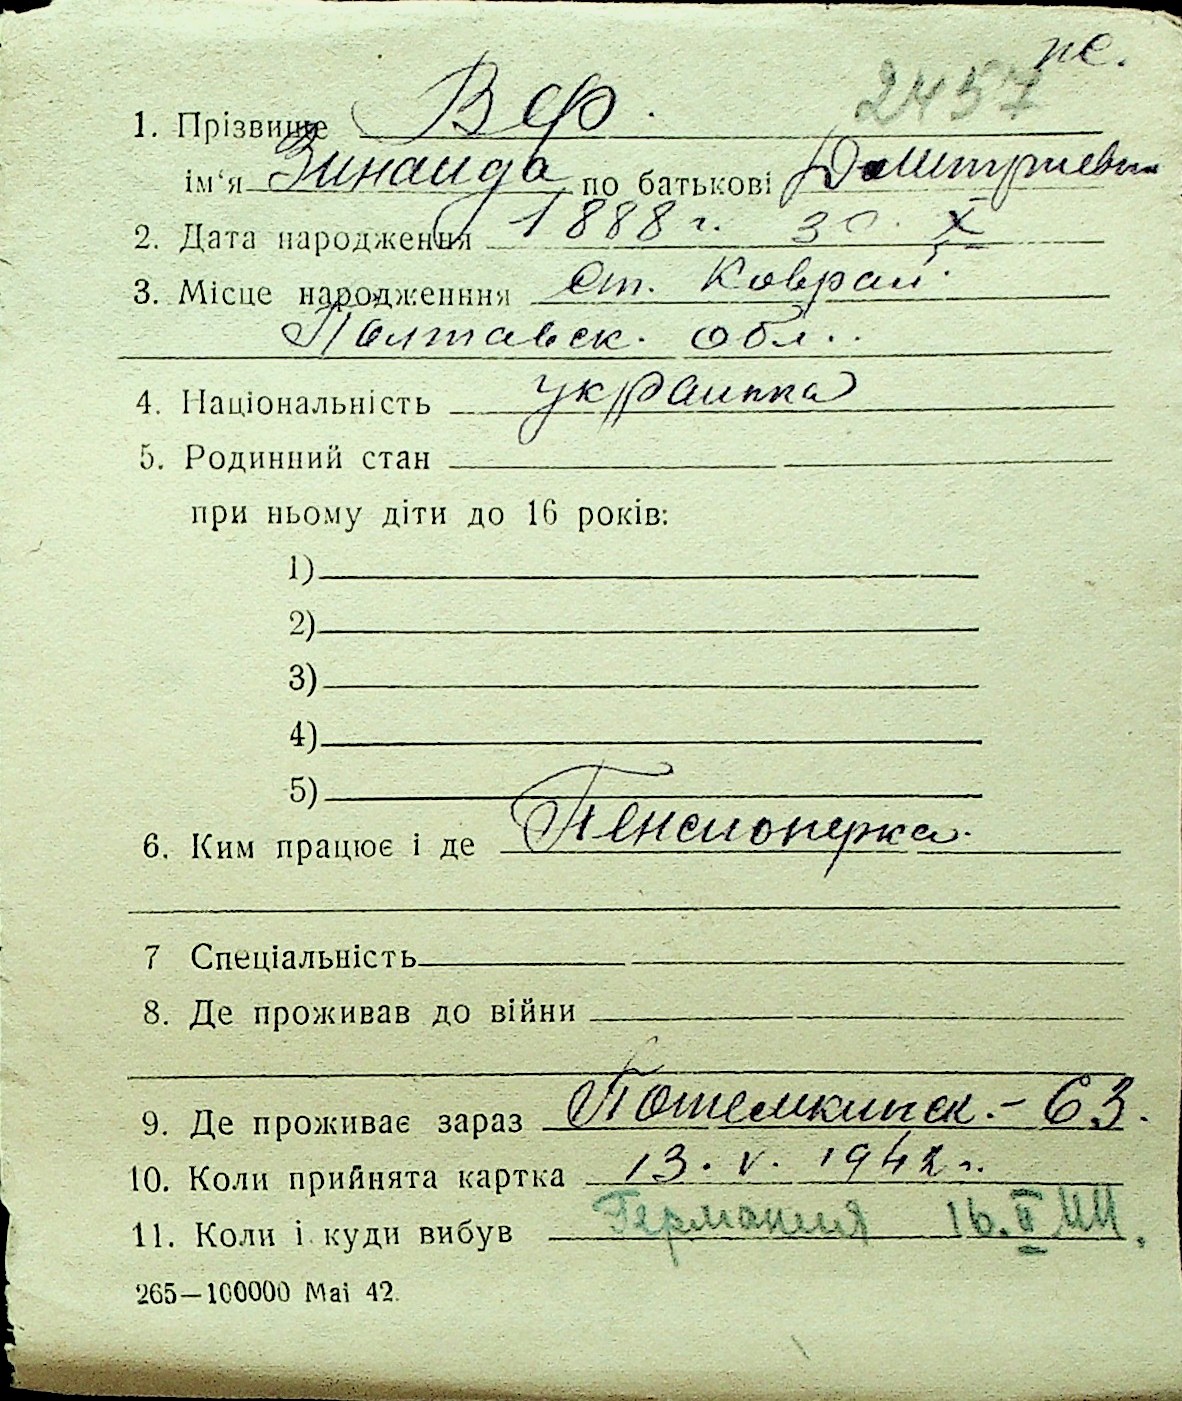 пе.
2457
1. Прізвище Веф.
ім'я Зинаида по батькові Дмитриевн
2. Дата народження 1888 г. 30. X
3. Місце народженння ст. Коврай
Полтавск. обл..
4. Національність украинка
5. Родинний стан
при ньому діти до 16 років:
1)
2)
3)
4)
5)
6. Ким працює і де Пенсионерка.
7 Спеціальність
8. Де проживав до війни
9. Де проживає зараз Потемкинск. - 63.
10. Коли прийнята картка 13. V. 1942 г.
11. Коли і куди вибув Германия 16. II
265—100000 Mai 42.